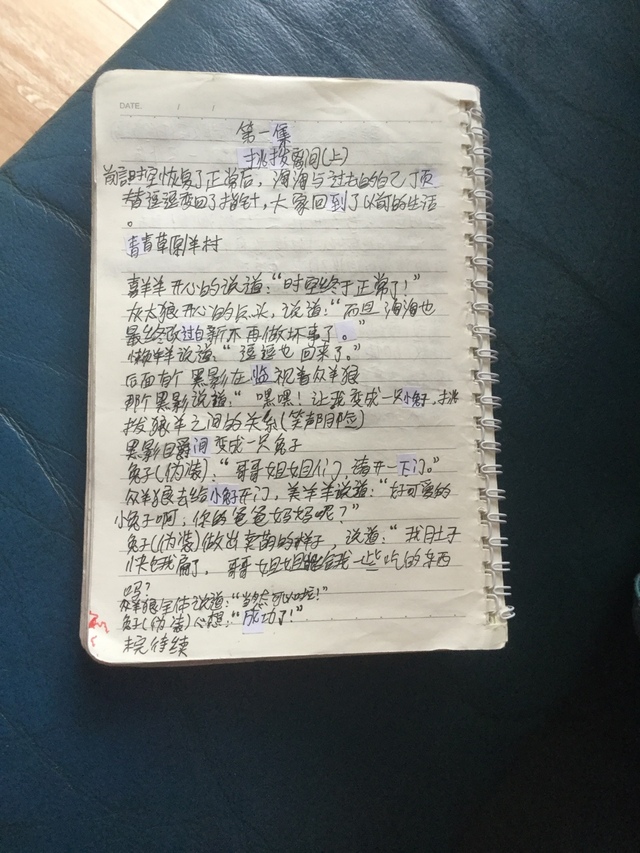 DATE: / /
第一集
挑拨离间(上)
前言时空恢复了正常后，淘淘与过去的自己顶
替逗逗变回了指针，大家回到了以前的生活
。
青青草原羊村
喜羊羊开心的说道:“时空终于正常了!”
灰太狼开心的点头，说道:“而且淘淘也
最终改过自新不再做坏事了。”
懒羊羊说道:“逗逗也回来了。”
后面有个黑影在监视着众羊狼
那个黑影说道:“嘿嘿!让我变成一只小兔子,挑
拨狼羊之间的关系(笑都阴险)
黑影目爵间变成一只兔子
兔子(伪装):“哥哥姐姐们，请开一下门。”
众羊狼去给小兔子开门，美羊羊说道:“好可爱的
小兔子啊，你的爸爸妈妈呢?”
兔子(伪装)做出卖萌的样子，说道:“我肚子
快饿扁了，哥哥姐姐能给我一些吃的东西
吗?
众羊狼全体说道:“当然可以啦!”
兔子(伪装)心想:“成功了!”
未完待续